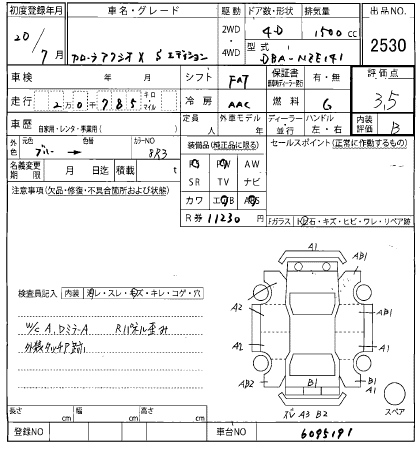 初度登録年月 車名・グレード 駆動 ドア数・形状 排気量 出品NO.
20/7月 カローラアクシオ X Sエディション 2WD 4WD 4-D 1500cc 2530
型式 DBA-NZE141
車検 年 月 シフト FAT 保証書 有・無 評価点
走行 2万0千785 キロ・マイル 冷房 AAC 燃料 G 3,5
車歴 自家用・レンタ・事業用( ) 定員 人 外車モデル 年 ディーラー・並行 ハンドル 左・右 内装評価 B
外色 元色 ブルー → 色替 カラーNO 8R3
装備品(純正品に限る) セールスポイント(正常に作動するもの)
名義変更期限 月 日迄 積載 t
PS PW AW
SR TV ナビ
カワ エアB ABS
R券 11230 円
Fガラス トビ石・キズ・ヒビ・ワレ・リペア跡
注意事項(欠品・修復・不具合箇所および状態)
検査員記入 内装 汚レ・スレ・キズ・キレ・コゲ・穴
W/C A, DミラーA Rパネル歪み
外装タッチP跡
A1
AB1
A2
A1
A2
A1
AB2
B1
B1
A1
A3 B2
スペア
長さ cm 幅 cm 高さ cm
登録NO 車台NO 6095191